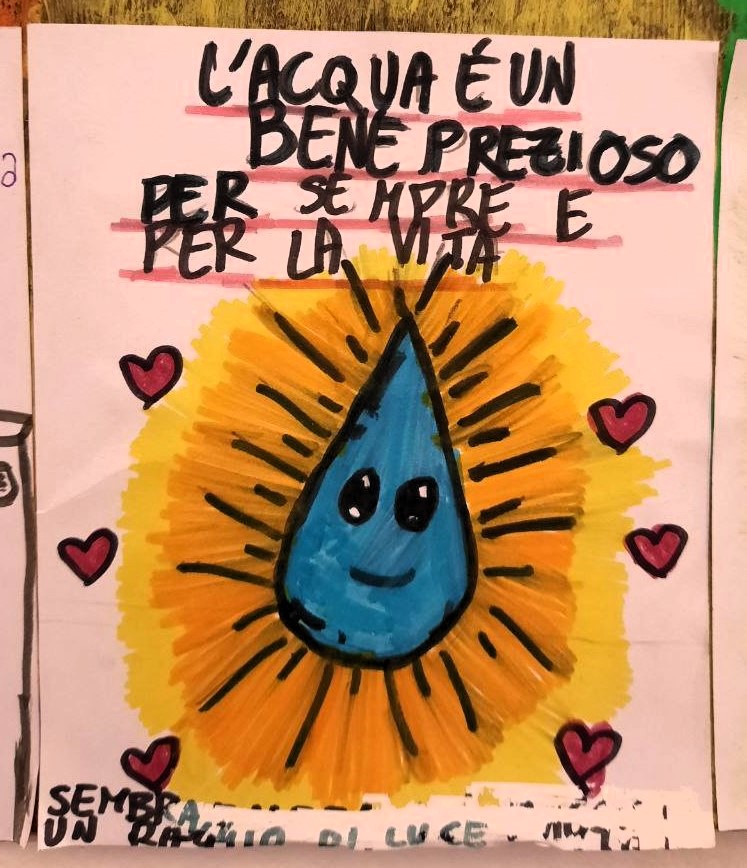 L'ACQUA É UN
BENE PREZIOSO
PER SEMPRE E
PER LA VITA
SEMBRA
UN RAGGIO DI LUCE.